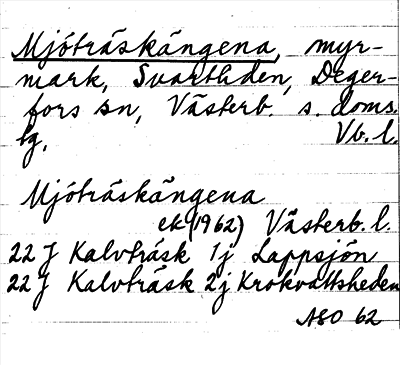 Mjóträskängena, myr-
mark, Svartliden, Deger-
fors sn, Västerb. s. doms.
lg. Vb. l.
Mjóträskängena
ek (1962) Västerb. l.
22 J Kalvträsk 1j Lappsjön
22 J Kalvträsk 2j Krokvattsheden
ASO 62